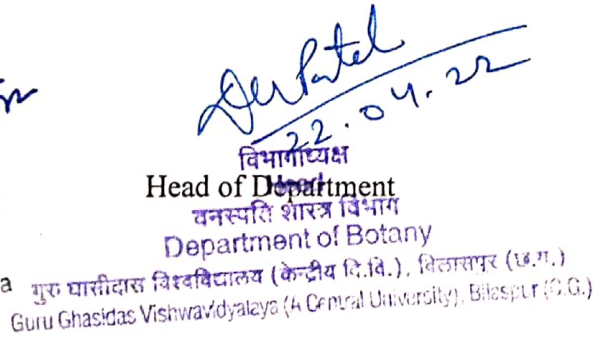 DK Patel
22.04.22
विभागाध्यक्ष
Head of Department
वनस्पति शास्त्र विभाग
Department of Botany
a गुरु घासीदास विश्वविद्यालय (केन्द्रीय वि.वि.), बिलासपुर (छ.ग.)
Guru Ghasidas Vishwavidyalaya (A Central University), Bilaspur (C.G.)